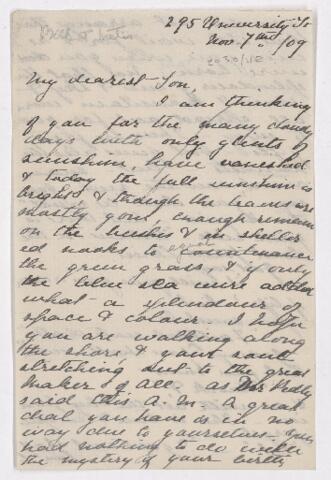 295 University St
Nov. 7th /09
2030/12
My dearest Ton,
I am thinking
of you for the many cloudy
days with only glints of
sunshine, have vanished
& today the full sunshine is
bright & though the leaves are
mostly gone, enough remain
on the bushes & in shelter
ed nooks to countenance
the green grass, & if only
the blue sea were added
what a splendour of
space & colour. I hope
you are walking along
the shore & your soul
stretching out to the great
Maker of all. as Dr
said this A.M. A great
deal you have is in no
way due to yourselves. You
had nothing to do with
the mystery of your birth